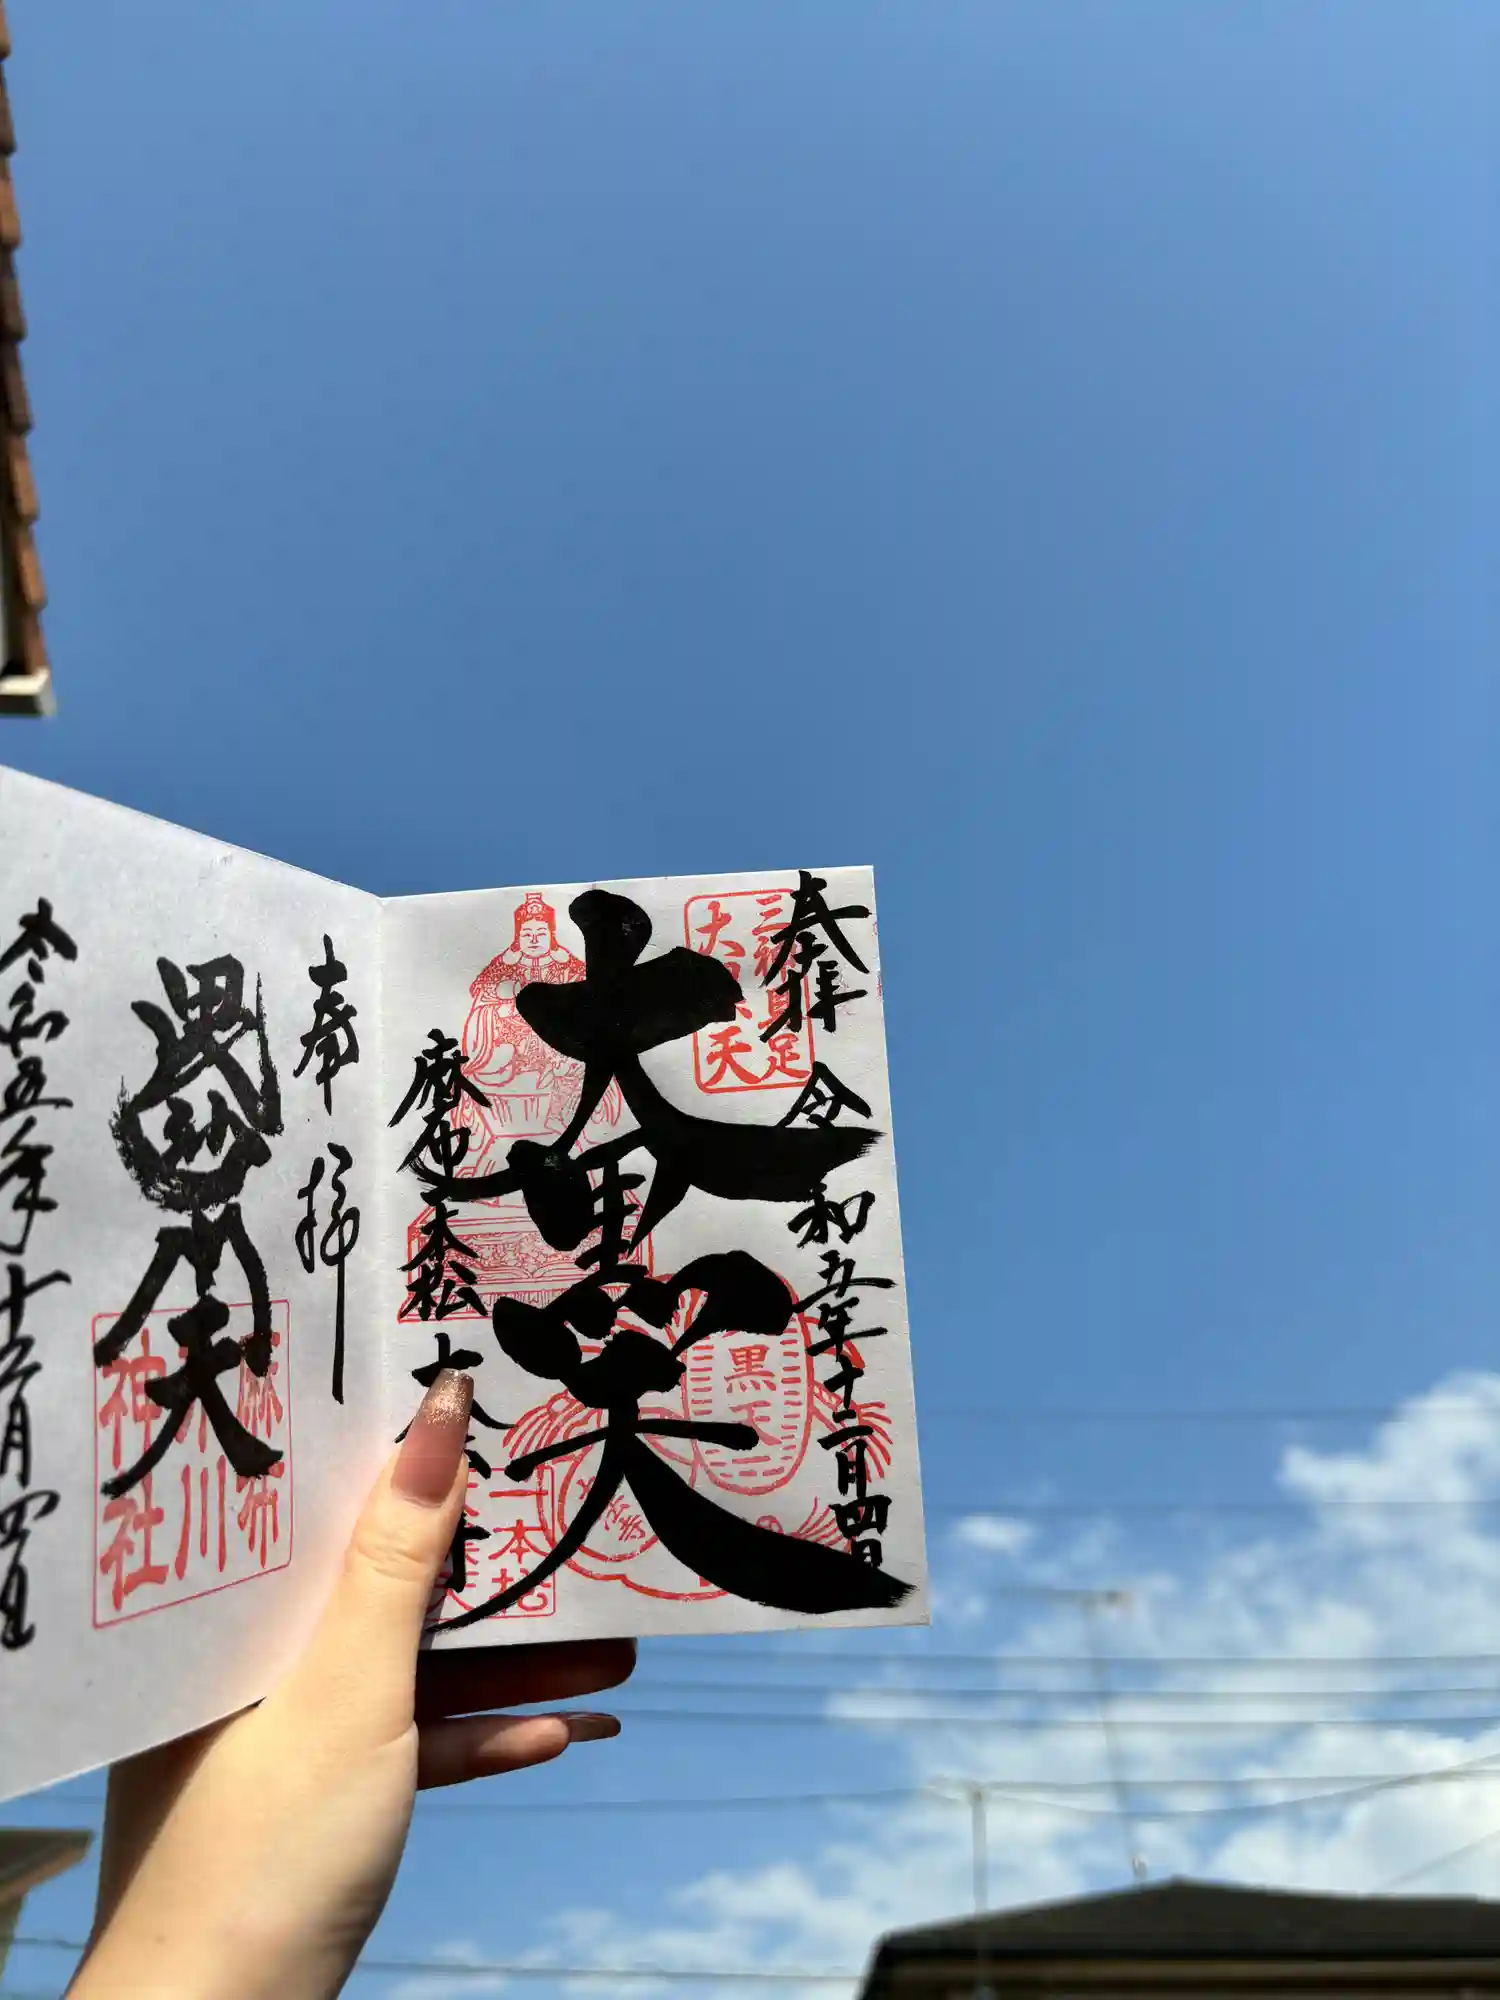 奉拝
令和五年十二月四日
三神具足
大黒天
大黒天
黒天
麻布一本松
大法寺
一本松
大黒天
奉拝
毘沙門天
麻布
氷川
神社
令和五年十二月四日